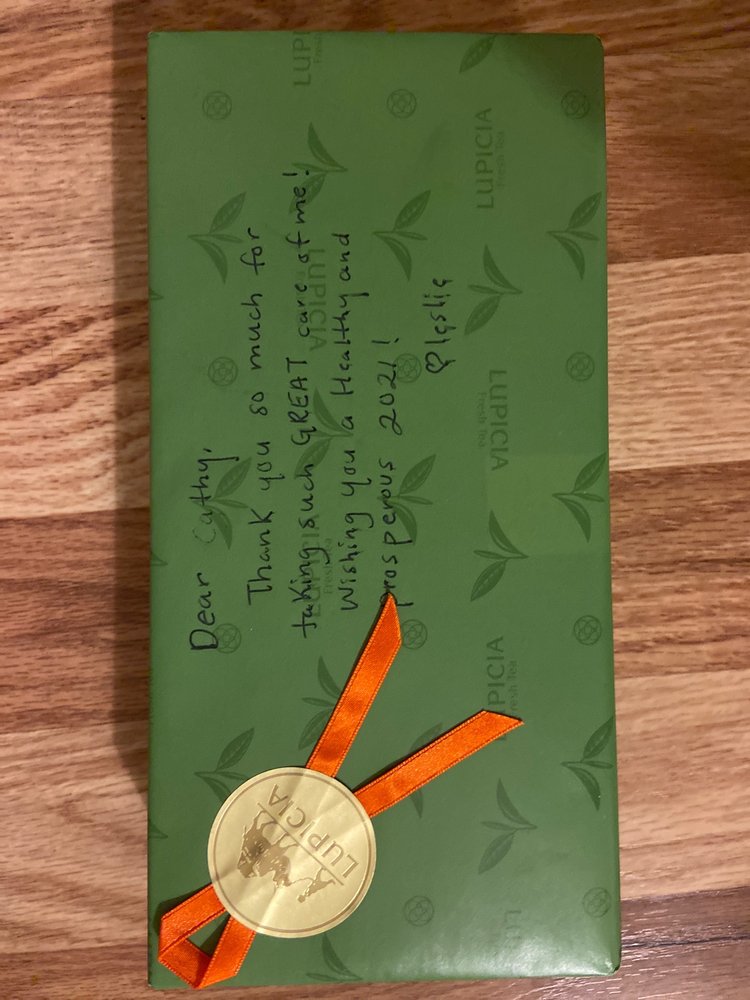 Dear Cathy,
Thank you so much for
taking such GREAT care of me!
Wishing you a Healthy and
prosperous 2021!
♡ leslie
LUPICIA
LUPICIA
Fresh Tea
LUPICIA
Fresh Tea
LUPICIA
Fresh Tea
LUPICIA
LUPICIA
Fresh Tea